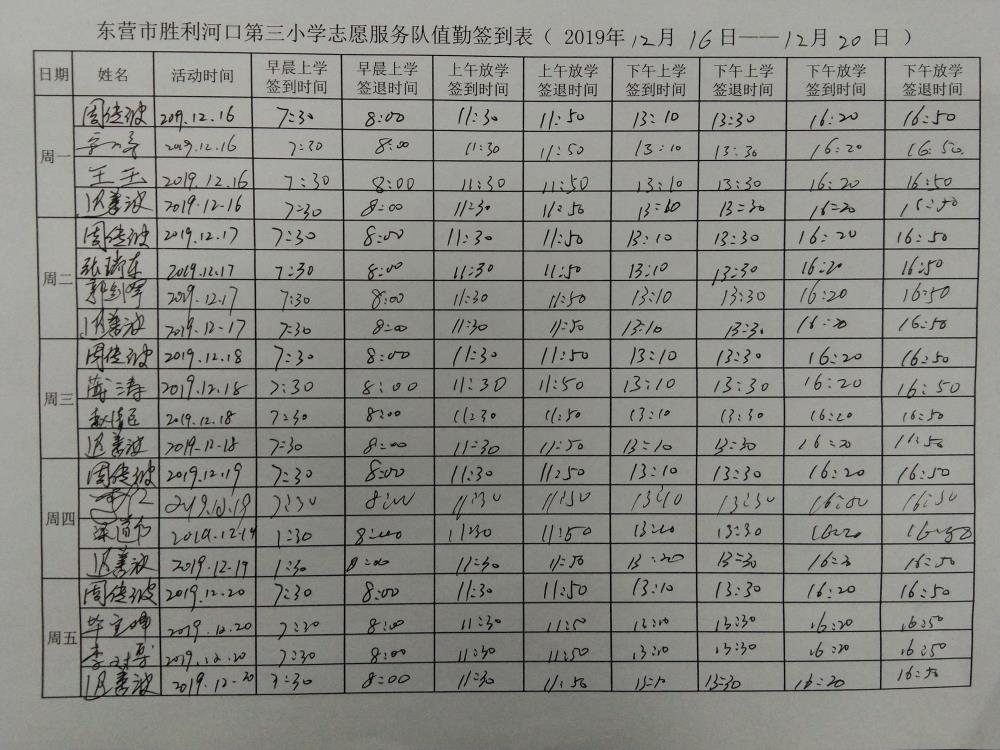 东营市胜利河口第三小学志愿服务队值勤签到表（ 2019年12月16日——12月20日 ）
日期 姓名 活动时间 早晨上学签到时间 早晨上学签退时间 上午放学签到时间 上午放学签退时间 下午上学签到时间 下午上学签退时间 下午放学签到时间 下午放学签退时间
周一 2019.12.16 7:30 8:00 11:30 11:50 13:10 13:30 16:20 16:50
2019.12.16 7:30 8:00 11:30 11:50 13:10 13:30 16:20 16:50
王玉 2019.12.16 7:30 8:00 11:30 11:50 13:10 13:30 16:20 16:50
2019.12.16 7:30 8:00 11:30 11:50 13:30 16:20 16:50
周二 2019.12.17 7:30 8:00 11:30 11:50 13:10 13:30 16:20 16:50
2019.12.17 7:30 8:00 11:30 11:50 13:10 13:30 16:20 16:50
2019.12.17 7:30 8:00 11:30 11:50 13:10 13:30 16:20 16:50
2019.12.17 7:30 8:00 11:30 11:50 13:10 13:30 16:20 16:50
周三 2019.12.18 7:30 8:00 11:30 11:50 13:10 13:30 16:20 16:50
2019.12.18 7:30 8:00 11:30 11:50 13:10 13:30 16:20 16:50
2019.12.18 7:30 8:00 11:30 11:50 13:10 13:30 16:20 16:50
2019.12.18 7:30 8:00 11:30 11:50 13:10 13:30 16:20 11:50
周四 2019.12.19 7:30 8:00 11:30 11:50 13:10 13:30 16:20 16:50
8:00 11:30 11:50 13:10 13:30 16:50
2019.12.19 1:30 8:00 11:30 11:50 13:30 16:20 16:50
2019.12.19 1:30 8:00 11:30 11:50 13:20 13:30 16:50
周五 2019.12.20 7:30 8:00 11:30 11:50 13:10 13:30 16:20 16:50
2019.12.20 7:30 8:00 11:30 11:50 13:10 13:30 16:20 16:50
2019.12.20 7:30 8:00 11:30 11:50 13:10 13:30 16:20 16:50
2019.12.20 7:30 8:00 11:30 11:50 13:30 16:20 16:50